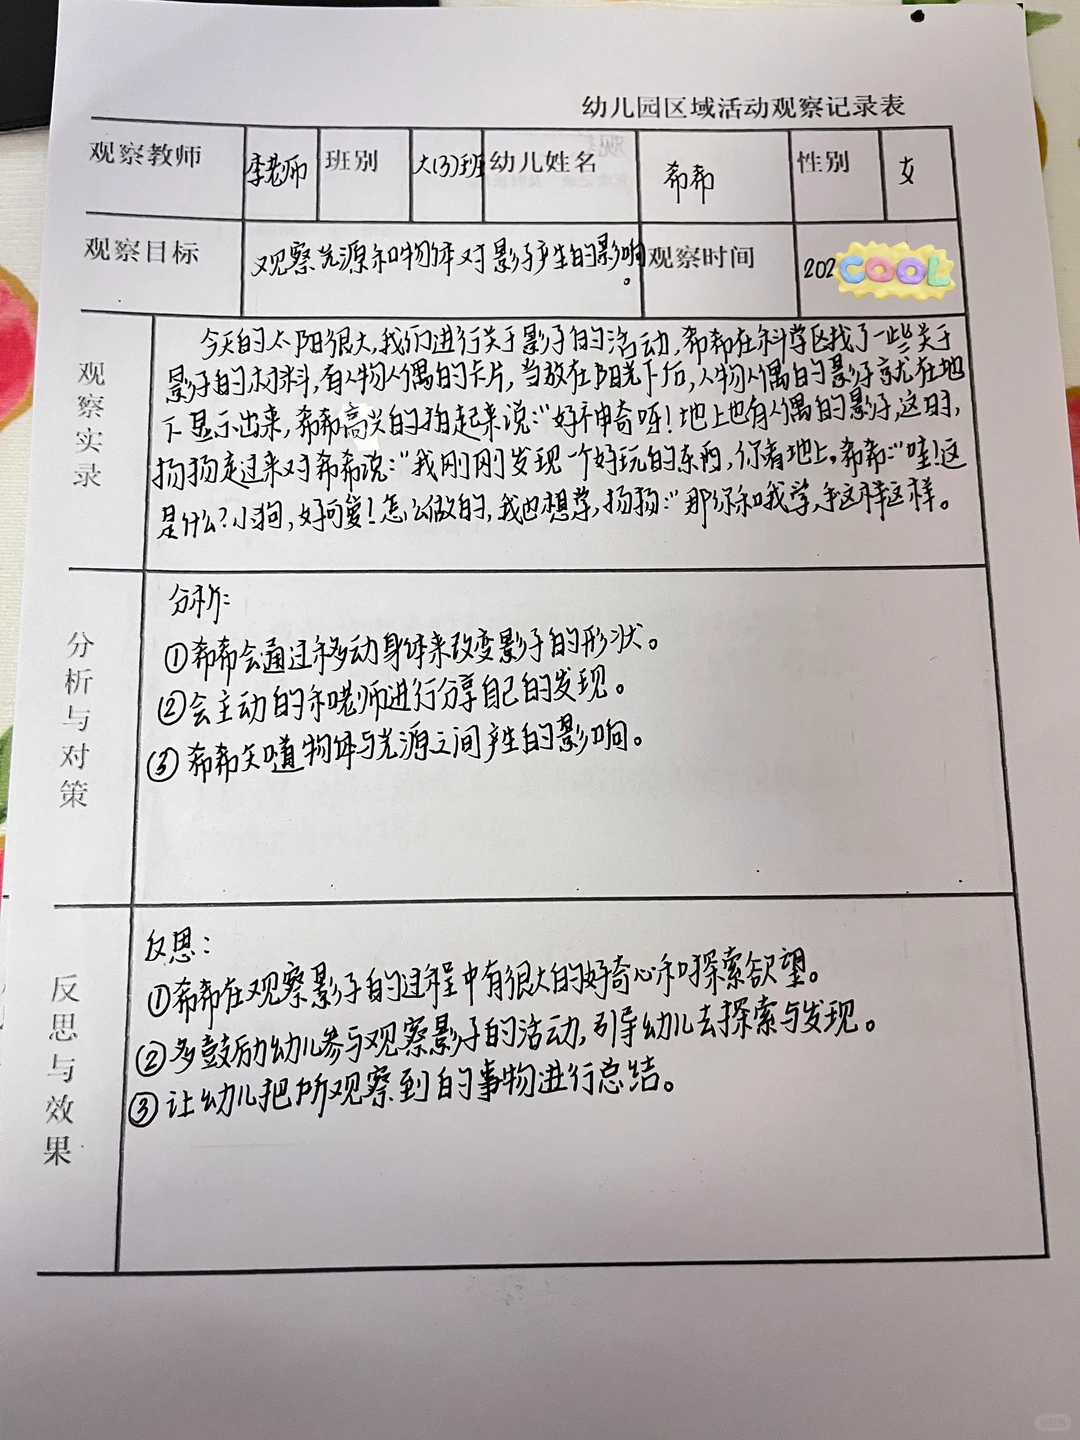 幼儿园区域活动观察记录表
观察教师 李老师 班别 大(3)班 幼儿姓名 希希 性别 女
观察目标 观察光源和物体对影子产生的影响。 观察时间 202
COOL
观察实录
今天的太阳很大,我们进行关于影子的活动,希希在科学区找了一些关于
影子的材料,有人物人偶的卡片,当放在阳光下后,人物人偶的影子就在地
下显示出来,希希高兴的拍起来说:“好神奇呀!地上也有人偶的影子,这时,
扬扬走过来对希希说:“我刚刚发现一个好玩的东西,你看地上。希希:“哇!这
是什么?小狗,好可爱!怎么做的,我也想学,扬扬:“那你和我学,手这样这样。
分析与对策
分析:
①希希会通过移动身体来改变影子的形状。
②会主动的和老师进行分享自己的发现。
③希希知道物体与光源之间产生的影响。
反思与效果
反思:
①希希在观察影子的过程中有很大的好奇心和探索欲望。
②多鼓励幼儿参与观察影子的活动,引导幼儿去探索与发现。
③让幼儿把所观察到的事物进行总结。